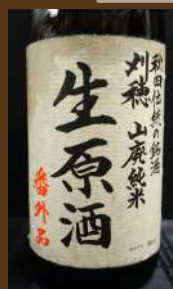 秋田伝統の銘酒
刈穂 山廃純米
生原酒
番外品